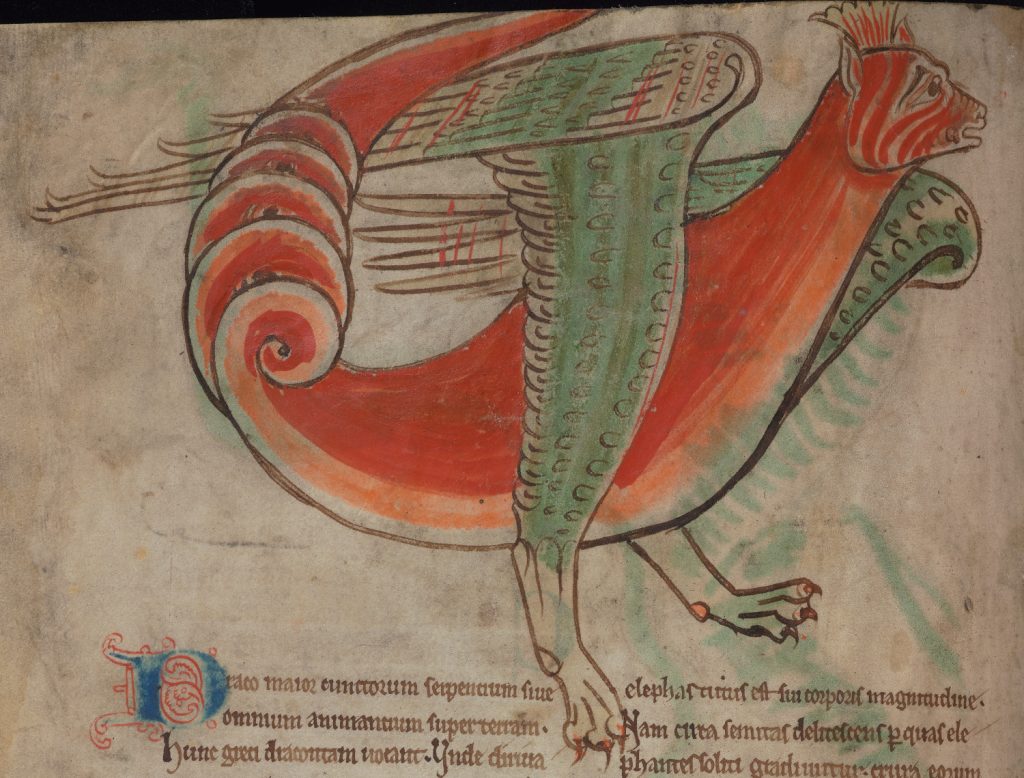 Draco maior cunctorum serpentium siue
omnium animantium super terram.
Hunc greci dracontam uocant. Unde diriua
elephas tutus est sui corporis magnitudine.
Nam circa semitas delitescens ꝑ quas ele
phantes soliti gradiuntur. crura eorum